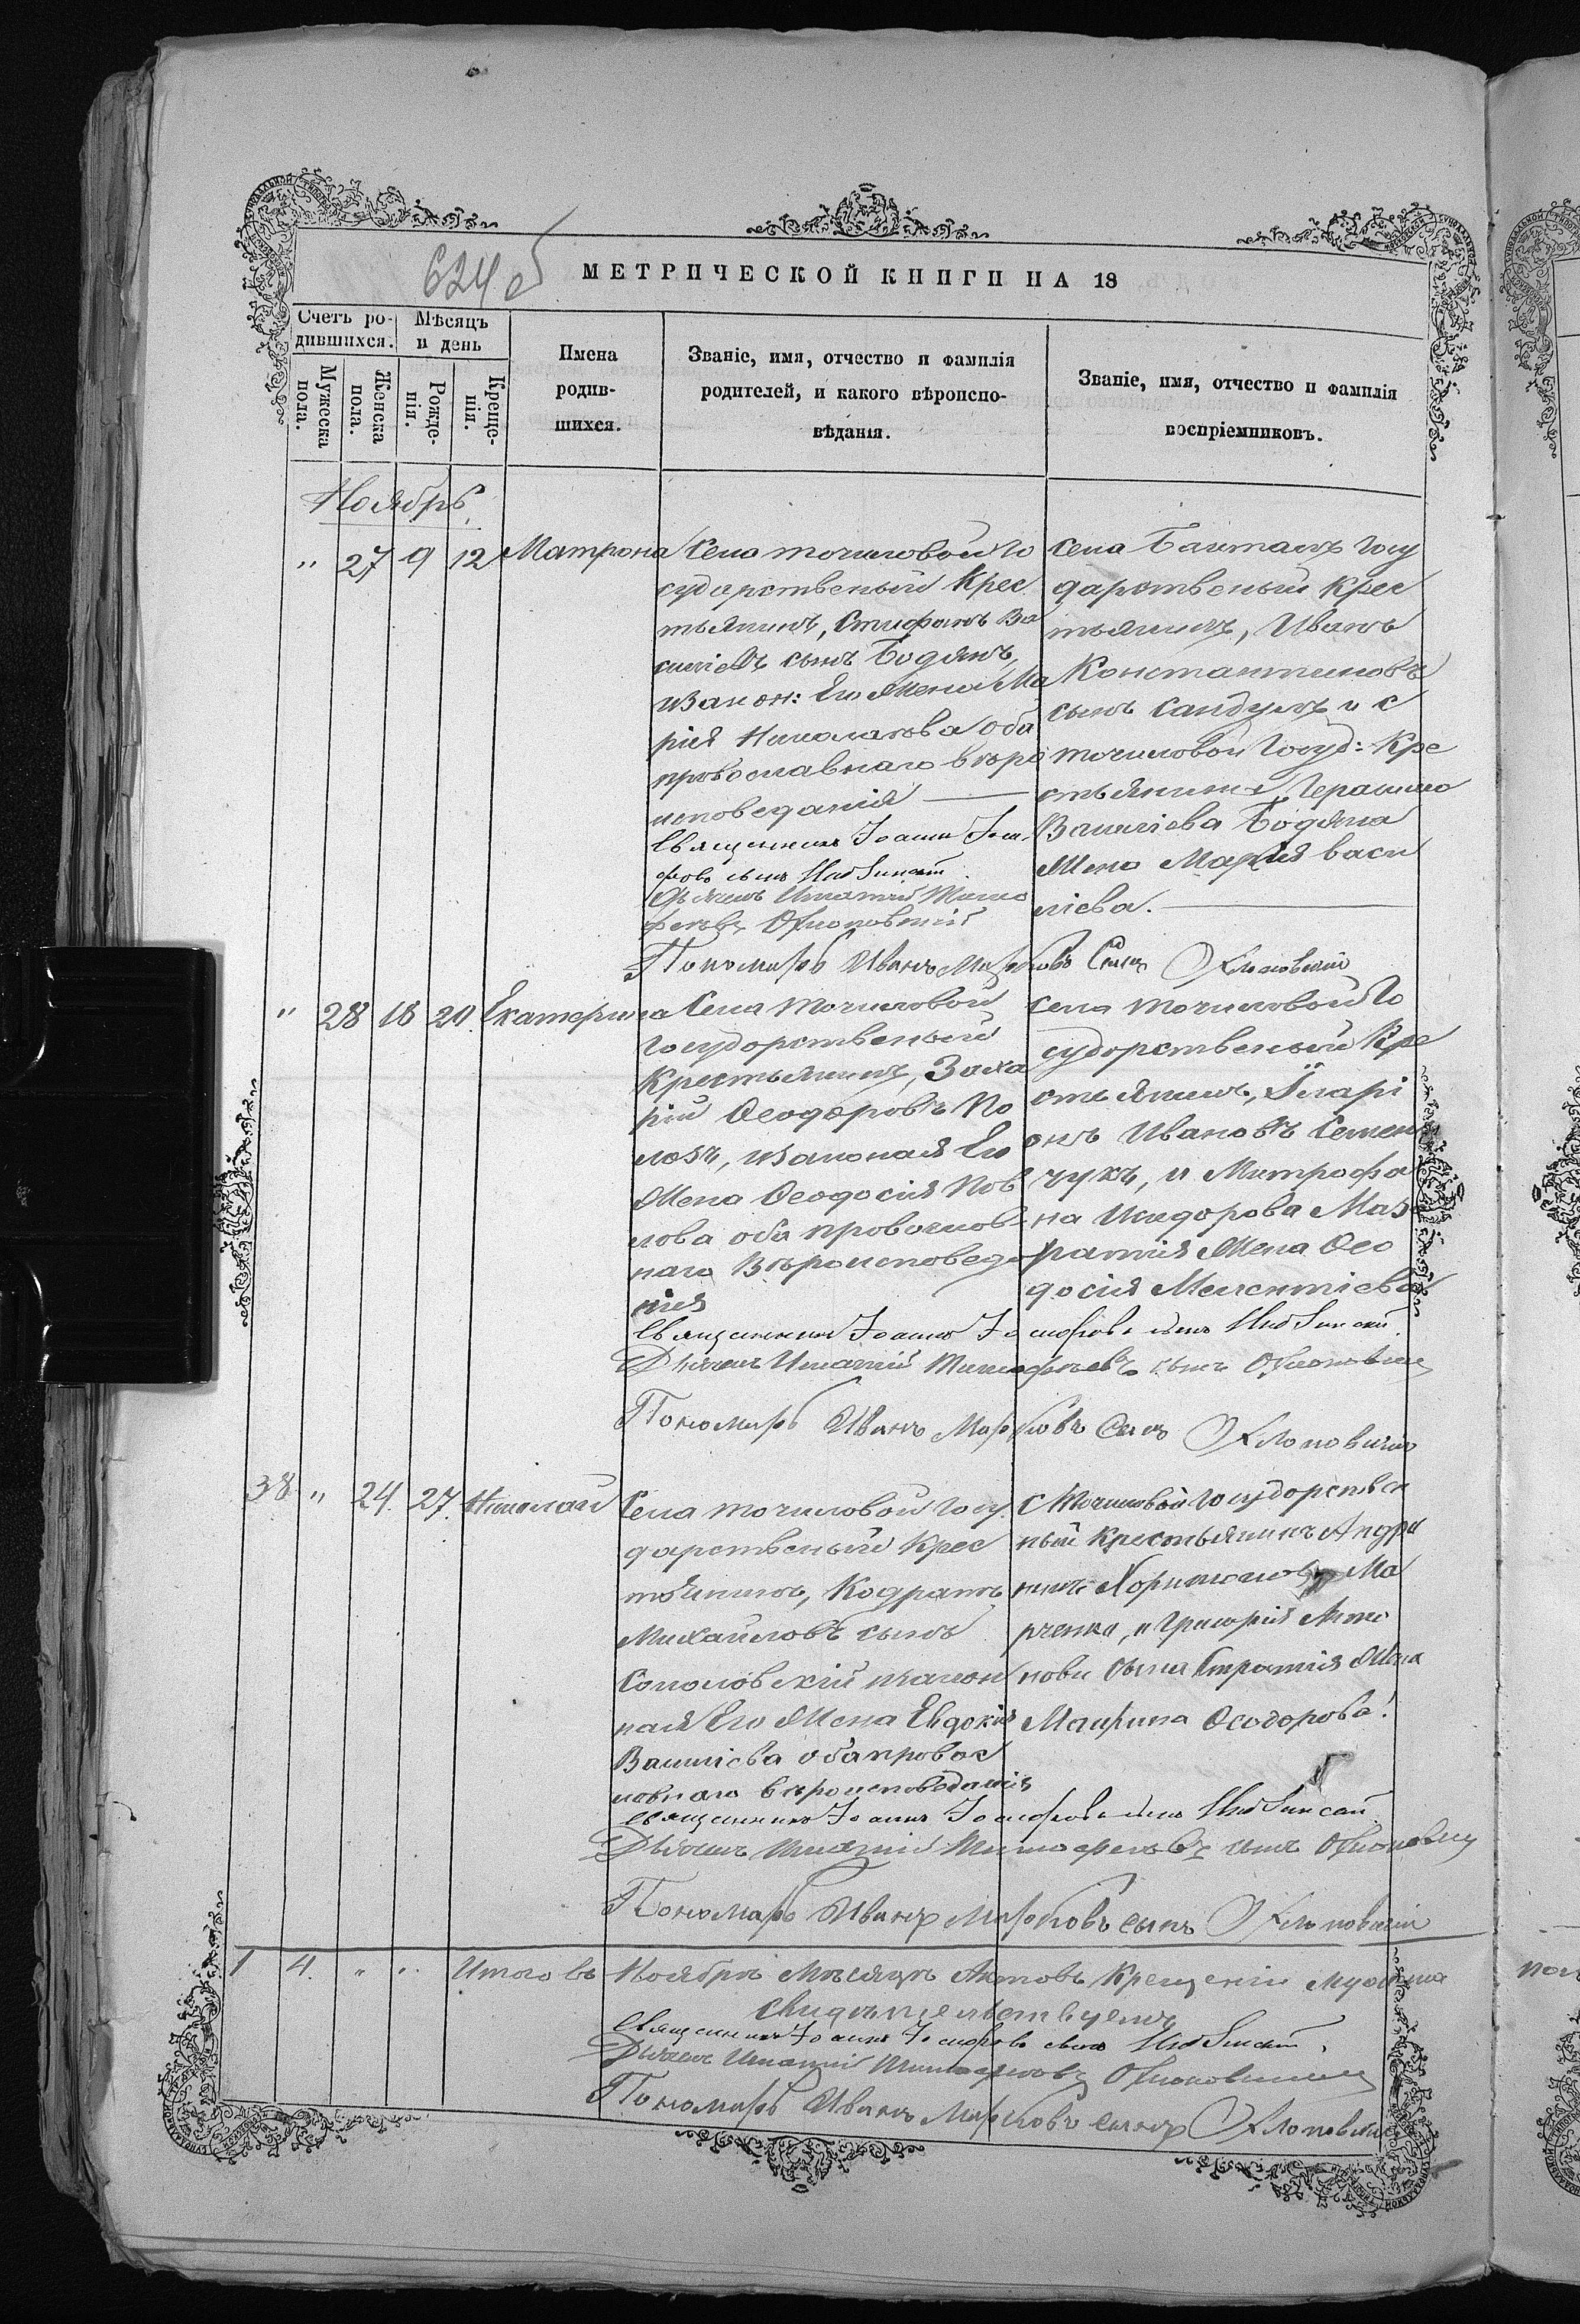 624 об
МЕТРИЧЕСКОЙ КНИГИ НА 18
Счетъ ро-
дившихся.
Мужеска
пола.
Женска
пола.
Мѣсяцъ
и день
Рожде-
нія.
Креще-
нія.
Имена
родив-
шихся.
Званіе, имя, отчество и фамилія
родителей, и какого вѣроиспо-
вѣданія.
Званіе, имя, отчество и фамилія
воспріемниковъ.
Ноябрь
" 27 9 12 Матрона
Села точиловой Го
сударственый Крес
тьянинъ, Стифанъ Ва
силіевъ сынъ Бодянъ,
изакон: Его Жена Ма
рія Николаева оба
провославнаго вѣро
исповеданія —
Священникъ Іоаннъ Іоси
фовъ сынъ
Дьячекъ Игнатій Тимо
феевъ
Пономарь Иванъ Марковъ Сынъ
села Балтанъ Госу
дарственый Крес
тьянинъ, Иванъ
Константиновъ
сынъ Сандулъ и с
точиловой Госуд: Кре
стьянина Герасимо
Василіева Бодяна
Жена Марія Васи
ліева. —
" 28 18 20. Екатерина
Села Точиловой
Государственый
Крестьянинъ, Заха
рій Ѳеодоровъ По
изаконая Его
Жена Ѳеодосія Пов
лова оба провослов
наго Вѣроисповеда
нія
Священникъ Іоаннъ Іосифовъ сынъ
Дьячекъ Игнатій Тимофѣевъ сынъ
Пономарь Иванъ Марковъ Сынъ
села Точиловой Го
сударственый Кре
стьянинъ, Іларі
онъ Ивановъ Семен
чукъ, и Митрофа
на Исидорова Маз
Жена Ѳео
досія Мелентіева
38 " 24. 27. Николай
Села точиловой Госу
дарственый Крес
тьянинъ, Кодратъ
Михайловъ сынъ
Соколовскій изакон
ная Его Жена Евдокія
Василіева оба провос
ловнаго вѣроисповеданія
Священникъ Іоаннъ Іосифовъ сынъ
Дьячекъ Игнатій Тимофеевъ сынъ
Пономарь Иванъ Марковъ сынъ
С Точиловой Государствен
ный Крестьянинъ Андри
Ма
и Григорія Анто
нови сына Жена
Маврина Ѳеодорова.
1 4. " " Итого въ Ноябрѣ Мѣсяцѣ Актовъ Крещеніи
свидѣтельствуемъ
Священникъ Іоаннъ Іосифовъ сынъ
Дьячекъ Игнатій Тимофеевъ
Пономарь Иванъ Марковъ сынъ